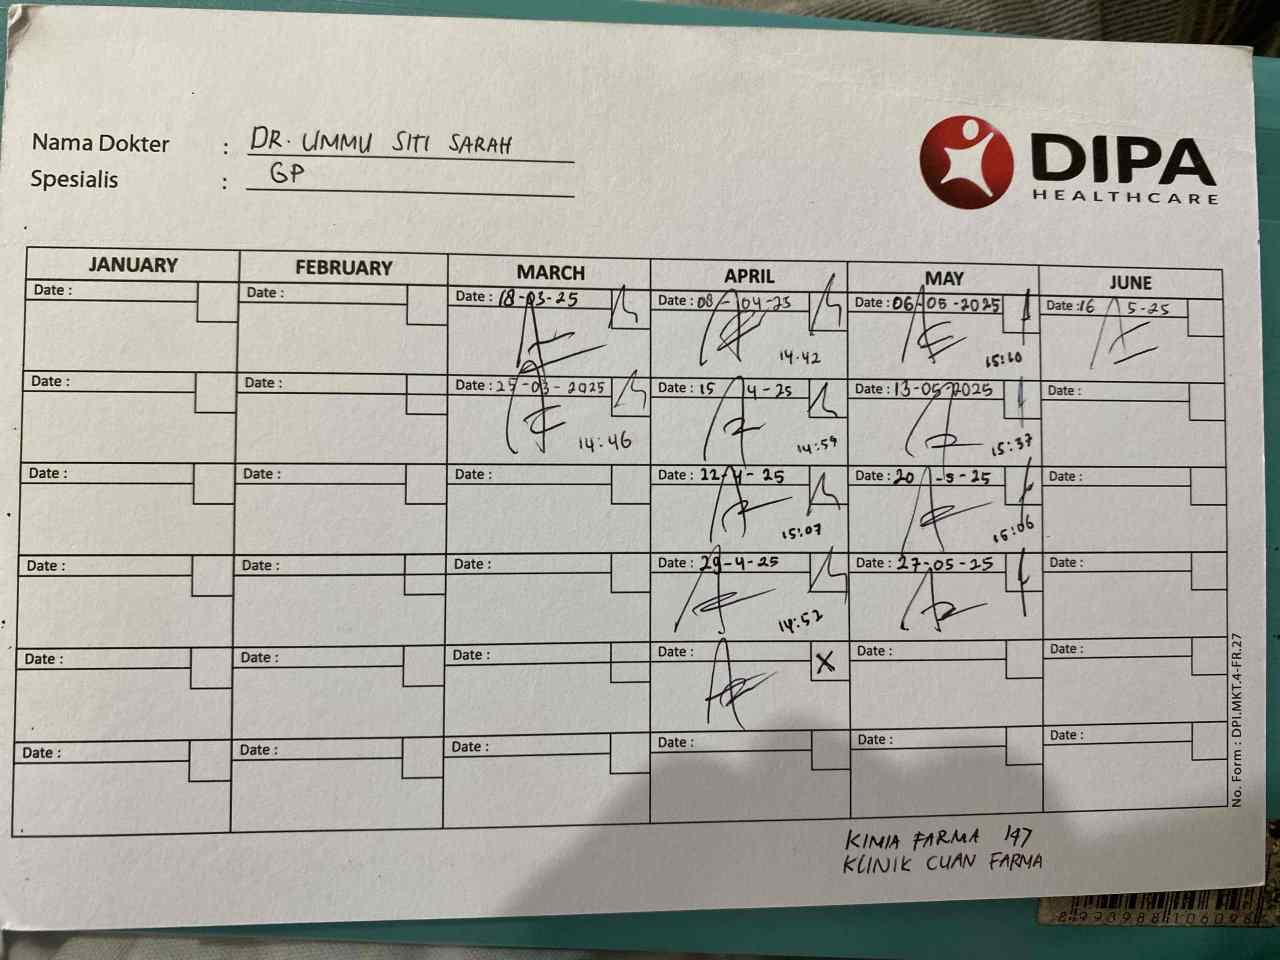 Nama Dokter : DR. UMMU SITI SARAH
Spesialis : GP
DIPA
HEALTHCARE
JANUARY FEBRUARY MARCH APRIL MAY JUNE
Date : Date : Date : 18-03-25 Date : 08-04-25 Date : 06-05-2025 Date : 16 5-25
14.42 15:10
Date : Date : Date : 25-03-2025 Date : 15 4-25 Date : 13-05-2025 Date :
14:46 14:59 15:37
Date : Date : Date : Date : 22-4-25 Date : 20-5-25 Date :
15:07 15:06
Date : Date : Date : Date : 29-4-25 Date : 27-05-25 Date :
14:52
Date : Date : Date : Date : X Date : Date :
Date : Date : Date : Date : Date : Date :
No. Form : DPI.MKT.4-FR.27
KIMIA FARMA 147
KLINIK CUAN FARMA